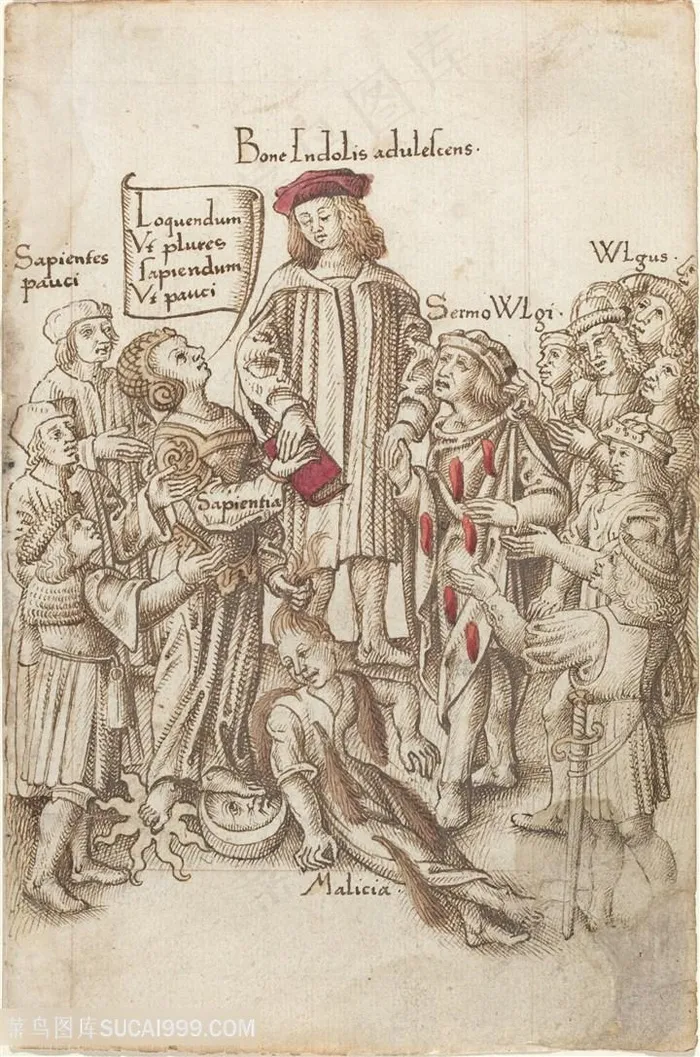 Bone Indolis adulescens.
Loquendum
Vt plures
sapiendum
Vt pauci
Sapientes
pauci
WLgus.
Sermo WLgi.
Sapientia
Malicia.
菜鸟图库SUCAI999.COM